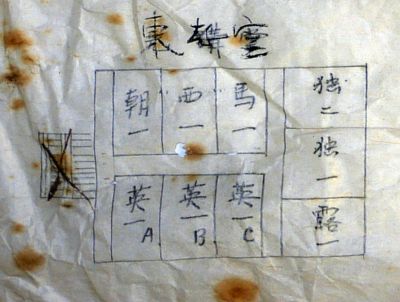 東
朝一
西一
馬一
独二
独一
露一
英一A
英一B
英一C